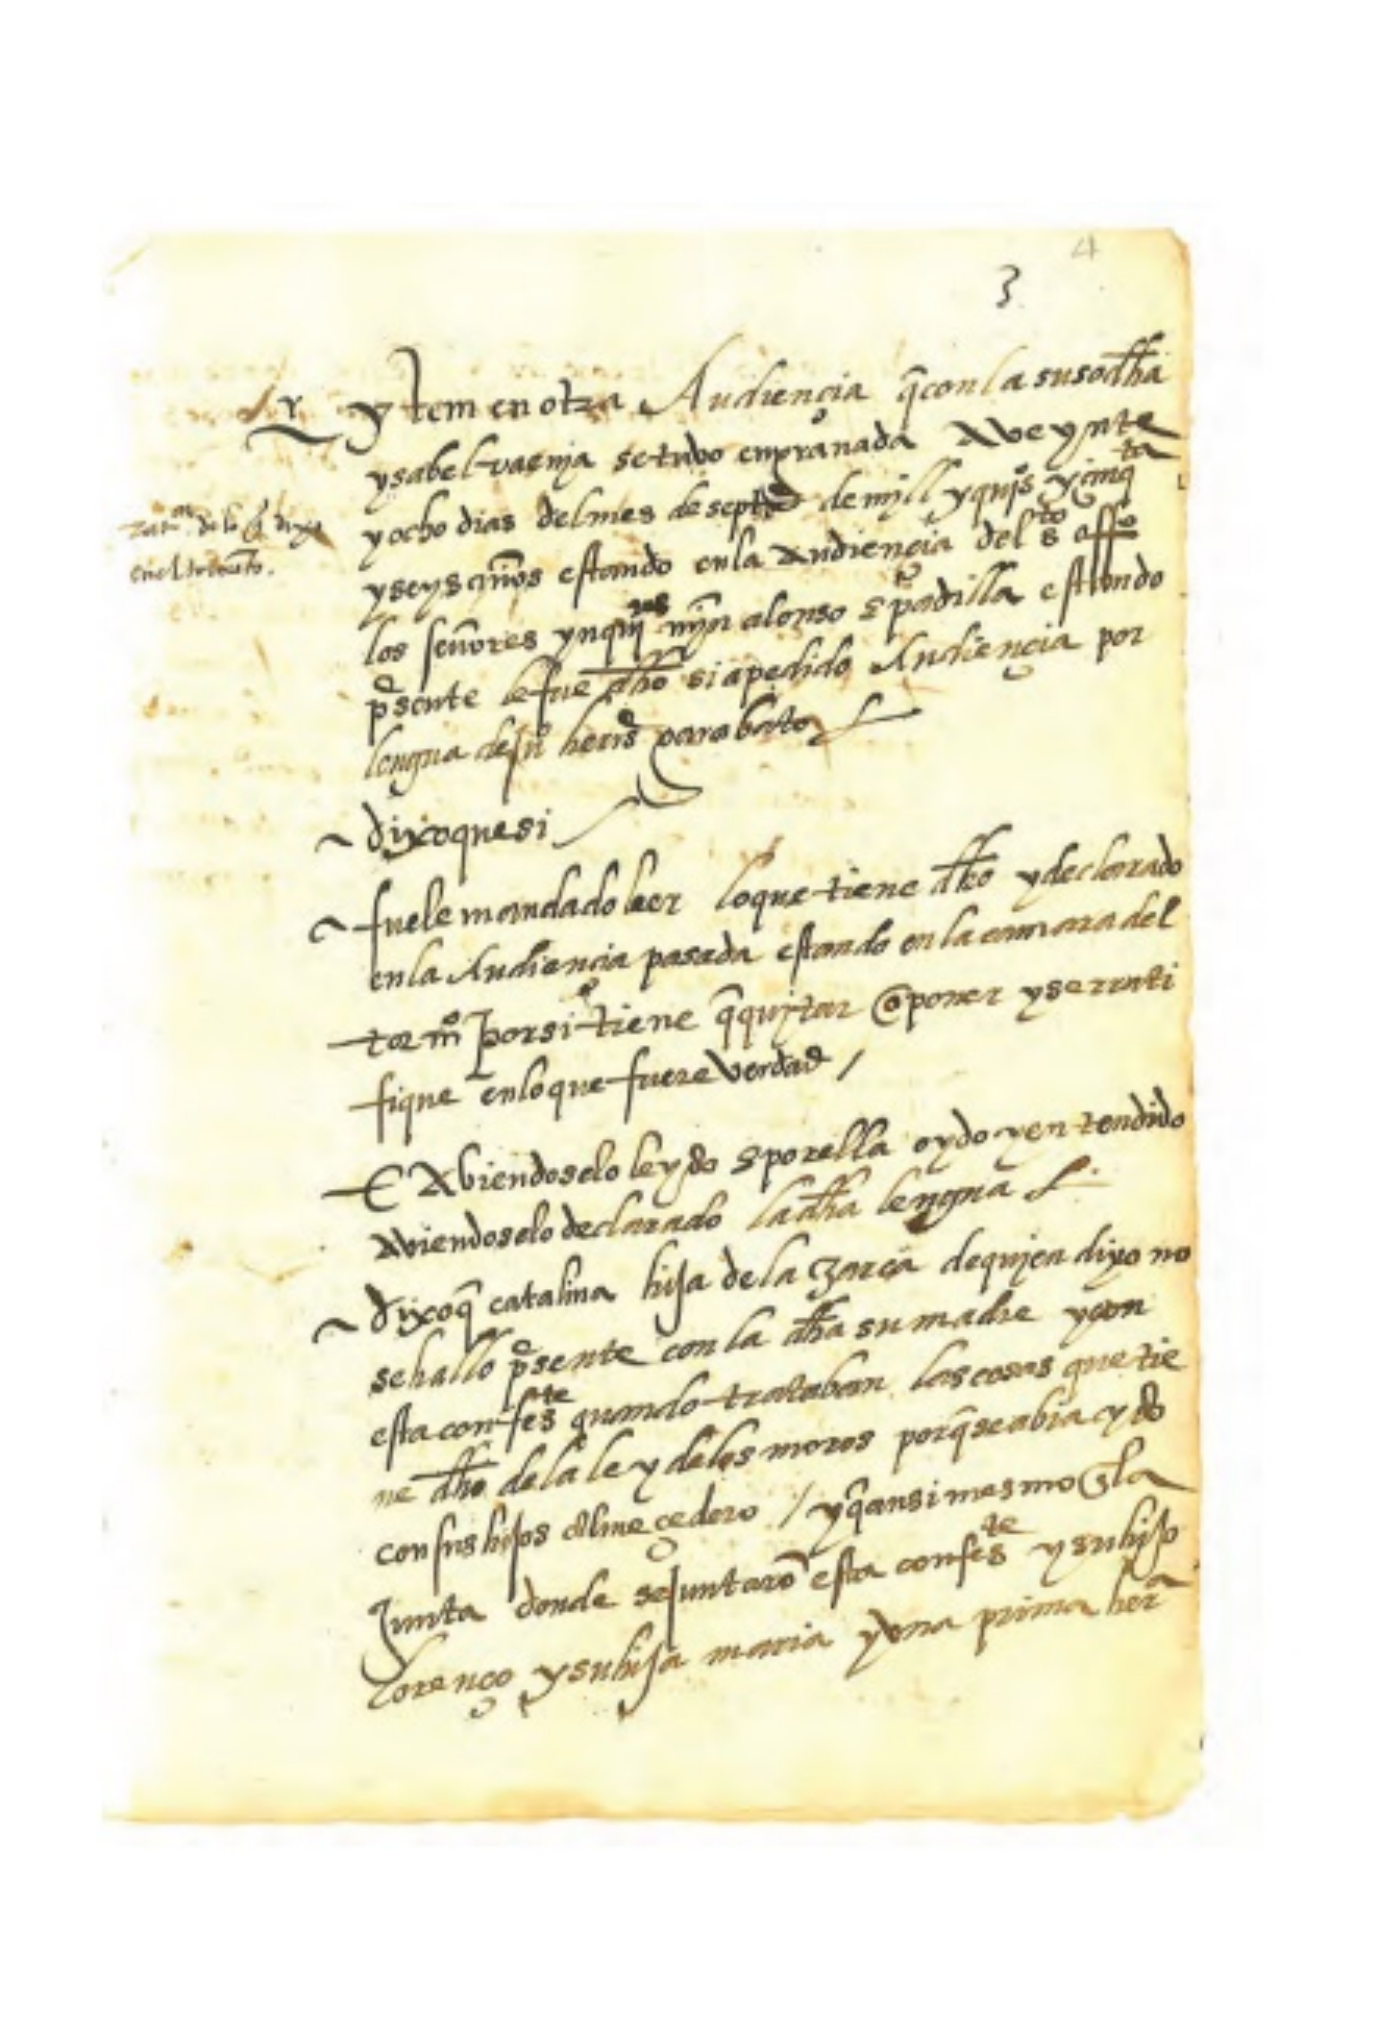 4
3
ytem en otra Audiençia q̃ con la susodh̃a
ysabel vaenja se tubo en granada A veynte
y ocho dias del mes de septe de mjll y qujºs y çinqta
y seys años estando en la Audiençia del sto offº
los señores ynqujres mjn alonso e padilla estando
presente le fue dh̃o si a pedido Audiençia por
lengua de juº herrs barabato
~ dixo que si
~ fuele mandado leer lo que tiene dh̃o y declarado
en la Audiençia pasada estando en la camara del
tormº por si tiene q̃ qujtar o poner y se rrati
fique en lo que fuere verdad /
E Abiendoselo leydo e por ella oydo y entendido
Aviendoselo declarado la dh̃a lengua
~ dixo q̃ catalina hija de la zarca de qujen dixo no
se hallo presente con la dh̃a su madre y con
esta confeste quando trataban las cosas que tie
ne dh̃o de la ley de los moros porq̃ se abia ydo
con sus hijos al meçedero / y q̃ ansi mesmo en la
Junta donde se juntarõ esta confeste y su hijo
lorenço y su hija maria y vna prima herª
Ratºn de lo q̃ dixo
en el tormtº.